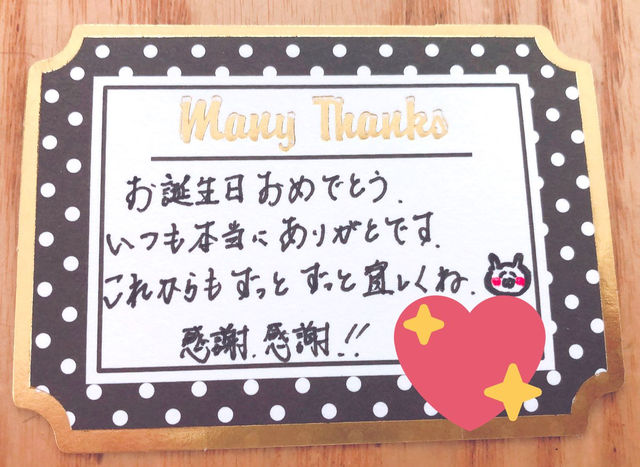 Many Thanks
お誕生日おめでとう.
いつも本当にありがとです.
これからもずっとずっと宜しくね.
感謝.感謝.!!